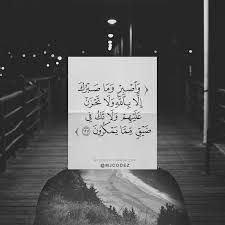 ﴿ وَٱصْبِرْ وَمَا صَبْرُكَ
إِلَّا بِٱللَّهِ وَلَا تَحْزَنْ
عَلَيْهِمْ وَلَا تَكُ فِى
ضَيْقٍ مِّمَّا يَمْكُرُونَ ﴾
@MJCODEZ